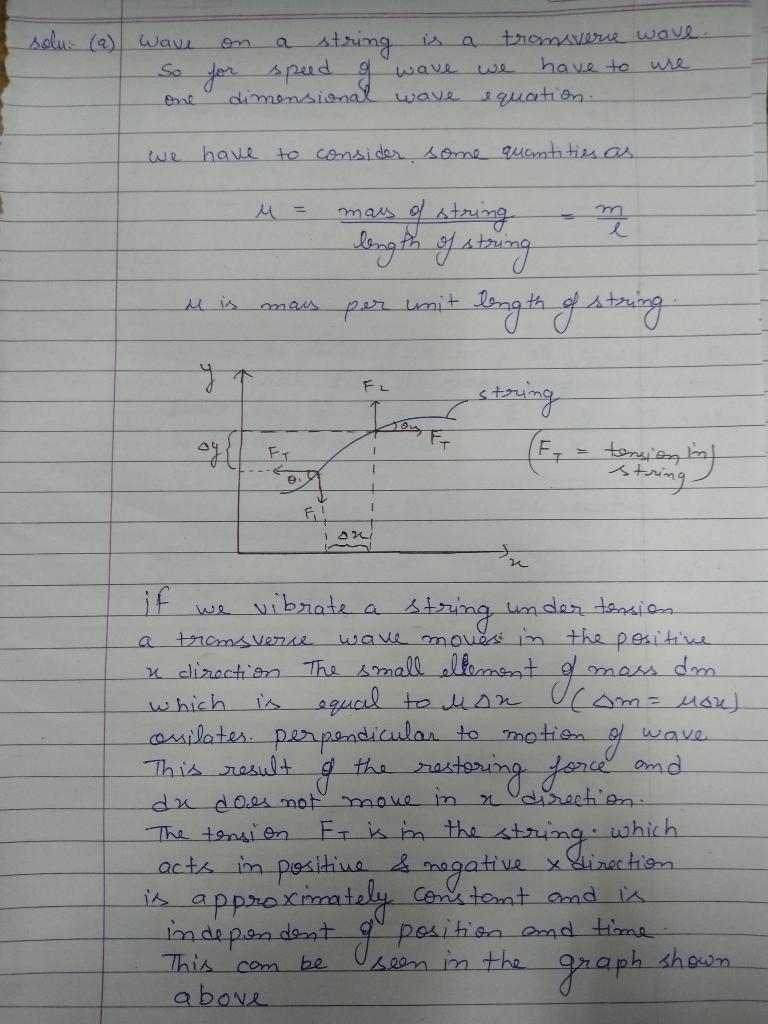 solu:- (a) Wave on a string is a transverse wave.
So for speed of wave we have to use
one dimensional wave equation.
we have to consider some quantities as
μ = mass of string / length of string = m / l
μ is mass per unit length of string.
y
F2
string
Δy
FT
θ2
FT
(FT = tension in
string)
θ1
F1
Δx
x
if we vibrate a string under tension
a transverse wave moves in the positive
x direction The small ellement of mass dm
which is equal to μΔx (Δm = μΔx)
ossilates. perpendicular to motion of wave
This result of the restoring force and
dx does not move in x direction.
The tension FT is in the string. which
acts in positive & negative x direction
is approximately constant and is
independent of position and time.
This can be seen in the graph shown
above